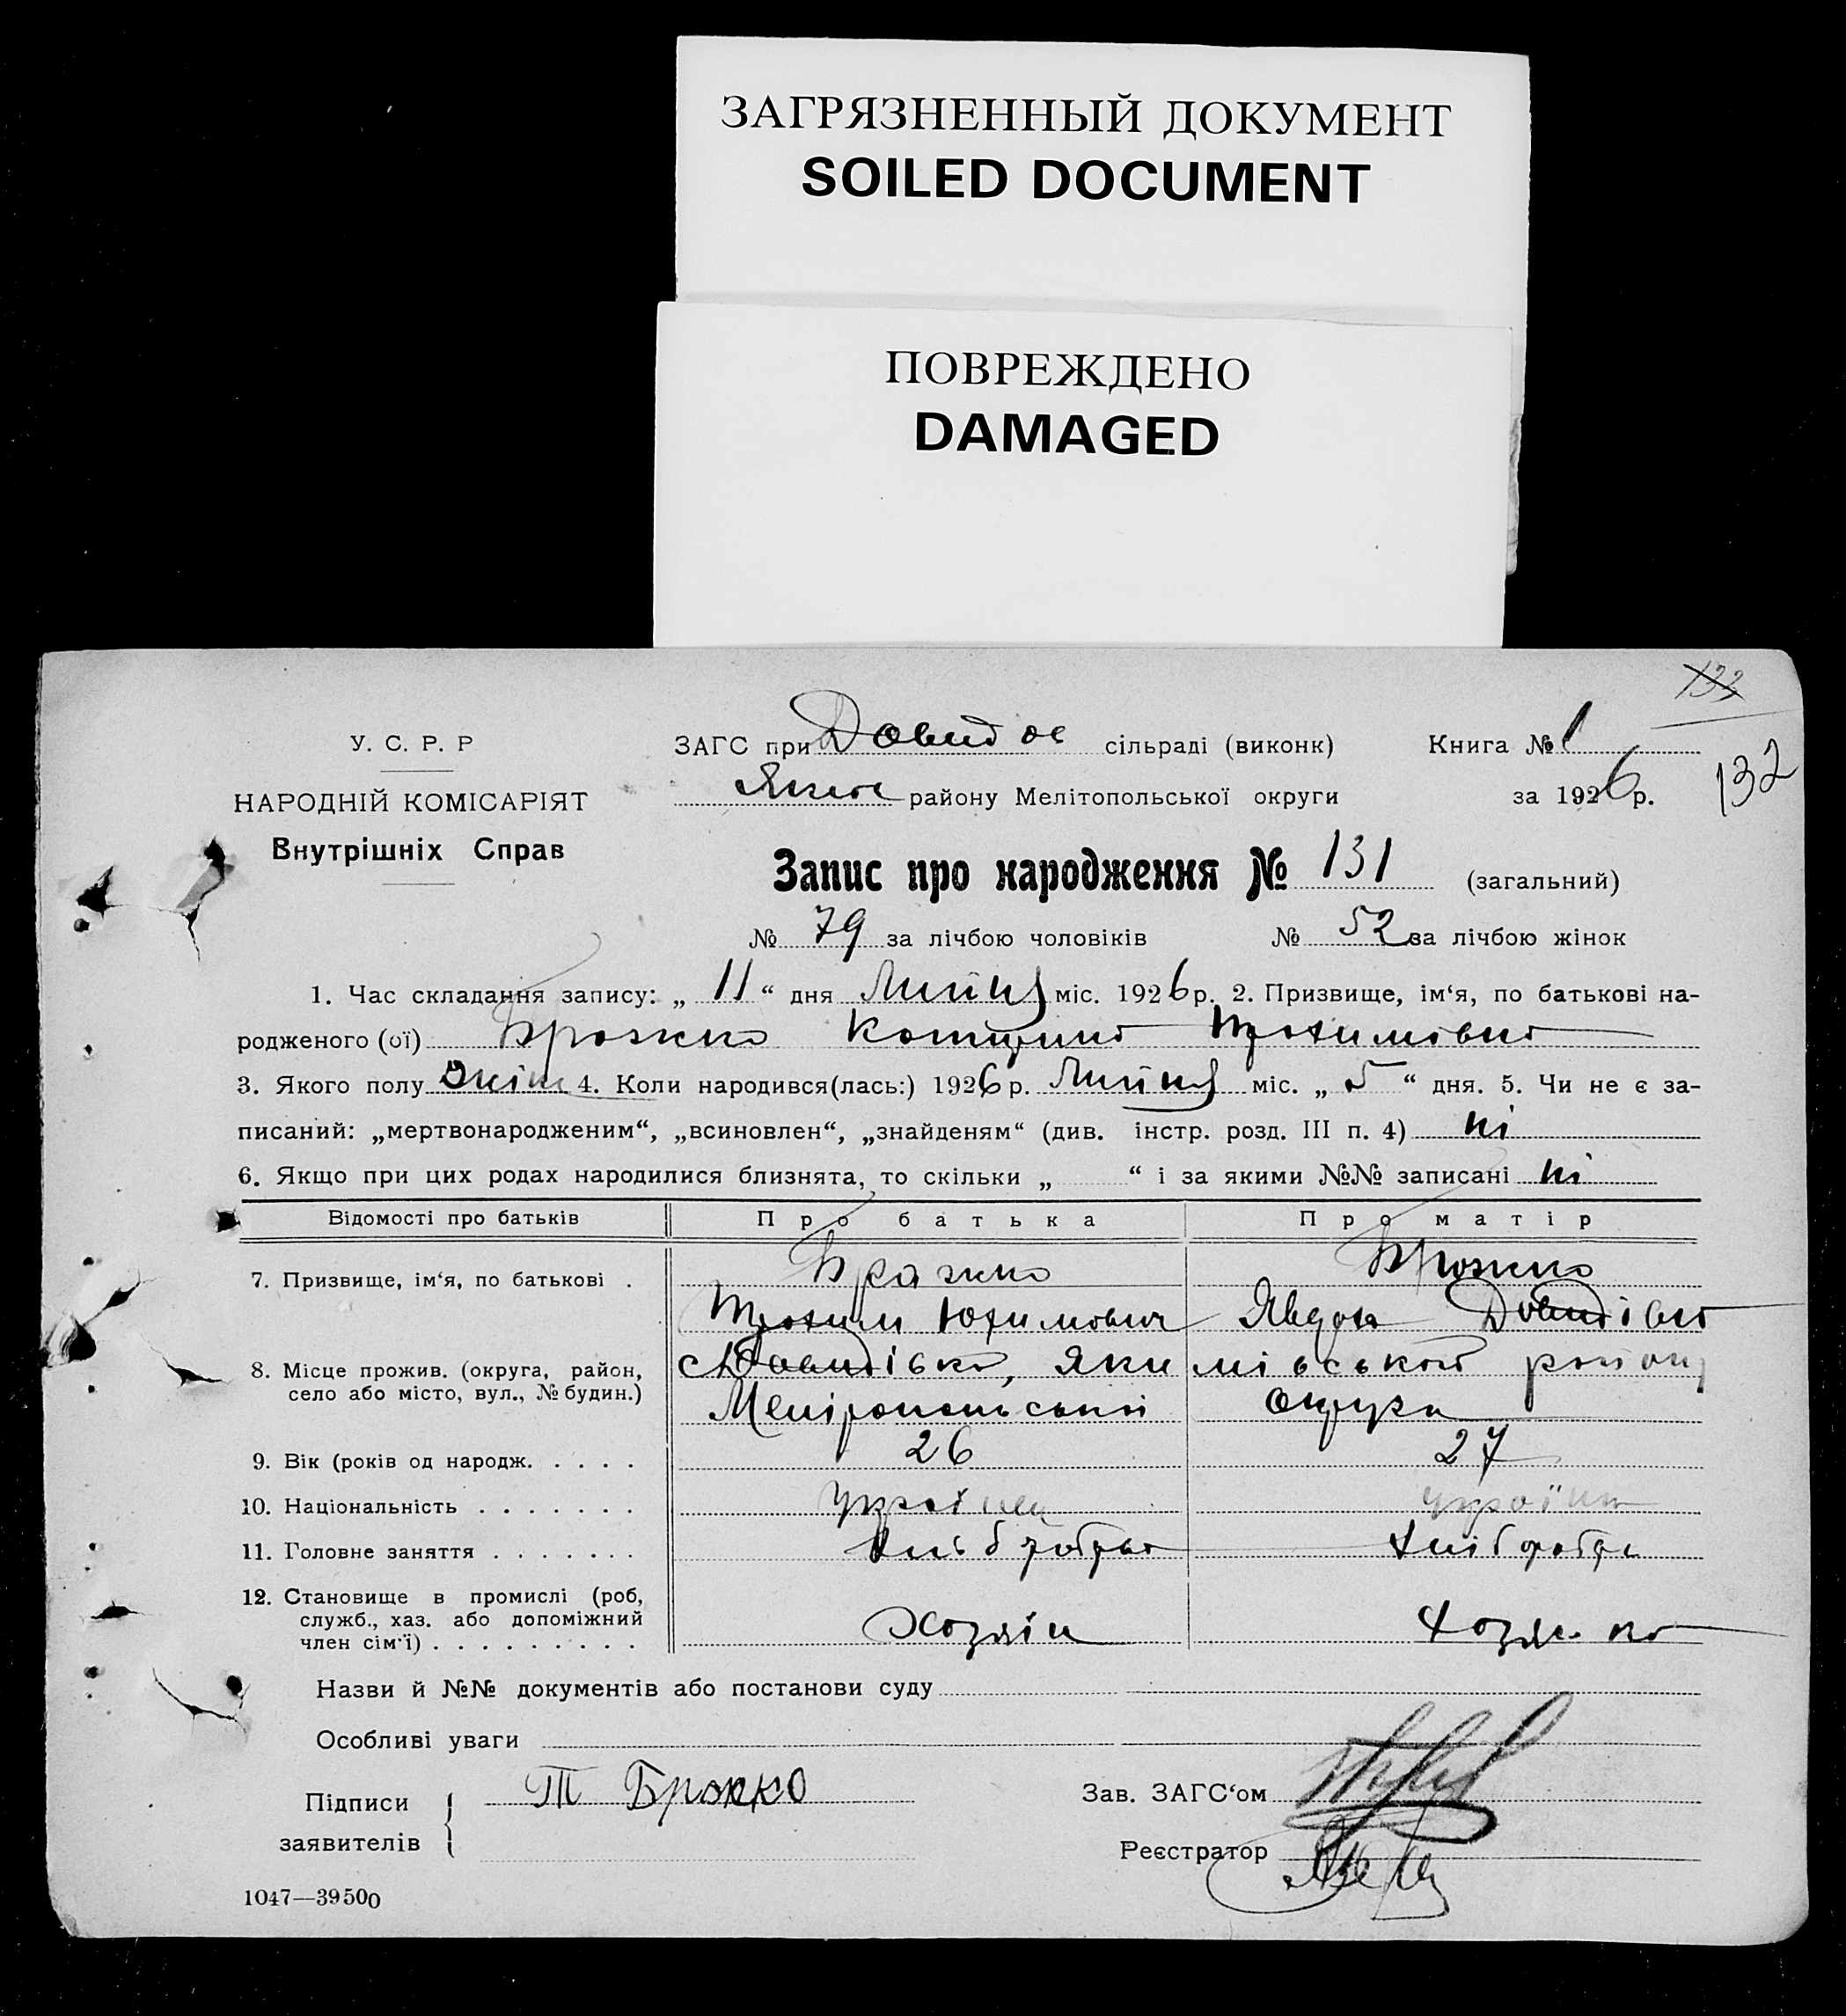 ЗАГРЯЗНЕННЫЙ ДОКУМЕНТ
SOILED DOCUMENT
ПОВРЕЖДЕНО
DAMAGED
133
У. С. Р. Р
НАРОДНІЙ КОМІСАРІЯТ
Внутрішніх Справ
ЗАГС при Довид ос сільраді (виконк)
Книга № 1
132
Яким районy Мелітопольської округи
за 1926 р.
Запис про народження № 131 (загальний)
№ 79 за лічбою чоловіків № 52 за лічбою жінок
1. Час складання запису: „ 11 “ дня Липня міс. 1926 р. 2. Призвище, ім‘я, по батькові на-
родженого (ої) Брожко Катерина Трохимовна
3. Якого полу жін 4. Коли народився(лась:) 1926 р. Липня міс. „ 5 “ дня. 5. Чи не є за-
писаний: „мертвонародженим“, „всиновлен“, „знайденям“ (див. інстр. розд. III п. 4) ні
6. Якщо при цих родах народилися близнята, то скільки „ “ і за якими №№ записані ні
Відомості про батьків Про батька Про матір
7. Призвище, ім‘я, по батькові . Бражко Брожко
Трохим Юхимович Явдоха Довидівна
8. Місце прожив. (округа, район, село або місто, вул., № будин.) с Давидівка, Якимівського району
Мелітопольської округи
9. Вік (років од народж. . . . . 26 27
10. Національність . . . . . . . українец україн
11. Головне заняття . . . . . . . хліборобство хлібороб
12. Становище в промислі (роб,
служб., хаз. або допоміжний
член сім‘ї) . . . . . . . . . Хозяін хозяйка
Назви й №№ документів або постанови суду
Особливі уваги
Підписи
заявителів
Т Брожко
Зав. ЗАГС‘ом
Реєстратор
1047—39500